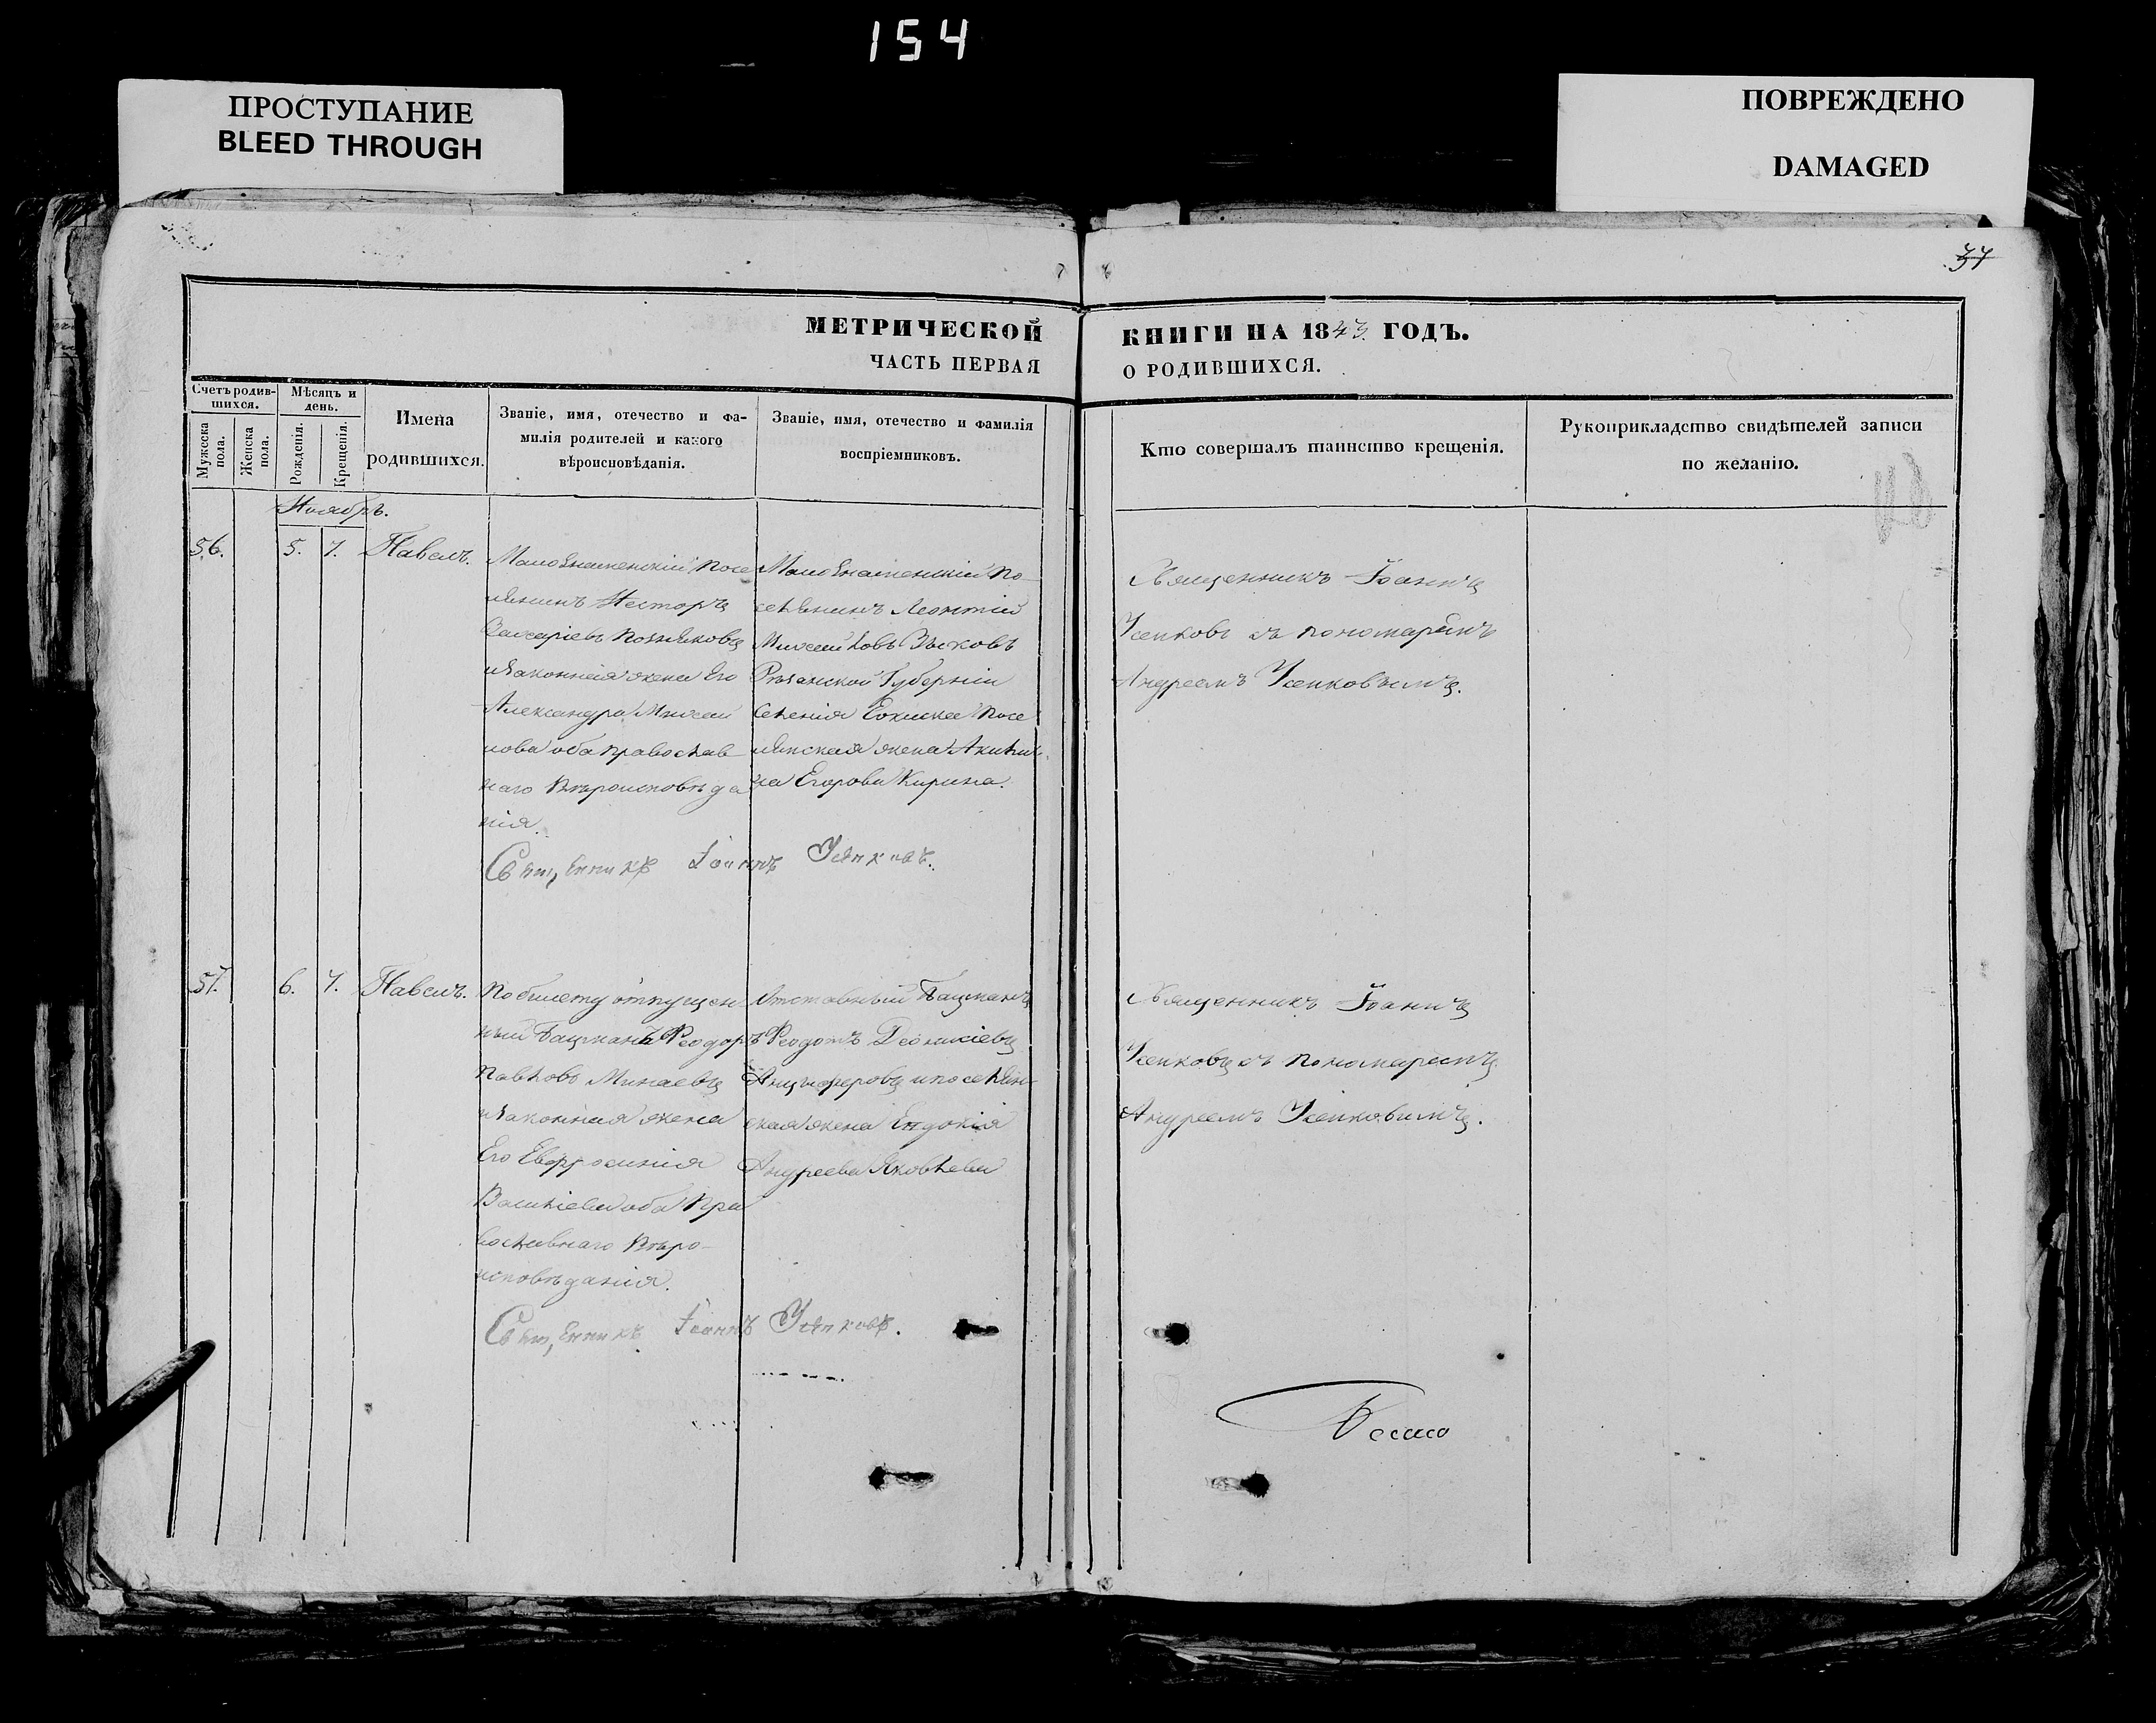 154
ПРОСТУПАНИЕ
BLEED THROUGH
ПОВРЕЖДЕНО
DAMAGED
37
МЕТРИЧЕСКОЙ
ЧАСТЬ ПЕРВАЯ
КНИГИ НА 1843. ГОДЪ.
О РОДИВШИХСЯ.
Счетъ родив-
шихся.
Мужеска
пола.
Женска
пола.
Мѣсяцъ и
день.
Рожденія.
Крещенія.
Имена
родившихся.
Званіе, имя, отечество и фа-
милія родителей и какого
вѣроисповѣданія.
Званіе, имя, отечество и фамилія
воспріемниковъ.
Кто совершалъ таинство крещенія.
Рукоприкладство свидѣтелей записи
по желанію.
Ноябрь.
56.
5.
7.
Павелъ.
Малознаменскій Посе
лянинъ Несторъ
Поляковъ
и законная жена Его
Александра
оба православ-
наго Вѣроисповѣда
нія.
Малознаменскій По-
селянинъ Леонтій
Зыковъ
Рязанской Губерніи
Селенія Посе
лянская жена Акили-
на Егорова Кирина.
Священникъ Іоаннъ Усенковъ.
Священникъ Іоаннъ
Усенковъ съ пономаремъ
Андреемъ Усенковымъ.
57.
6.
7.
Павелъ.
По билету отпущен
ный Боцманъ Ѳеодоръ
Павловъ Минаевъ
и законная жена
Его Евфросинія
Васильева оба Пра
вославнаго Вѣро-
исповѣданія.
Отставный Боцманъ
Ѳеодотъ
Анцыферовъ и поселян-
ская жена Евдокія
Андреева Яковлева
Священникъ Іоаннъ Усенковъ.
Священникъ Іоаннъ
Усенковъ съ пономаремъ
Андреемъ Усенковымъ.